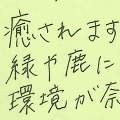 癒されます
緑や鹿に
環境が奈